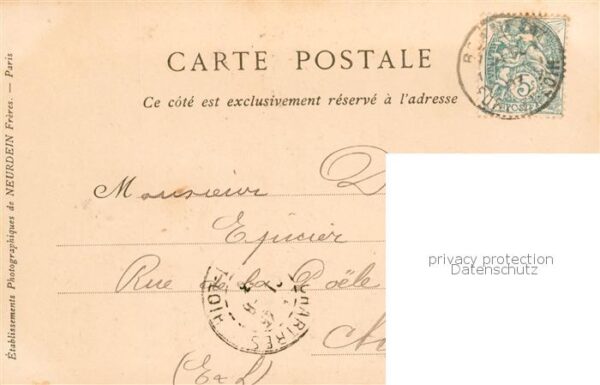 CARTE POSTALE
Ce côté est exclusivement réservé à l'adresse
Établissements Photographiques de NEURDEIN Frères. — Paris
Monsieur D
Epicier
Rue de la Poële
(E & L)
CHARTRES
POSTES
5
privacy protection
Datenschutz